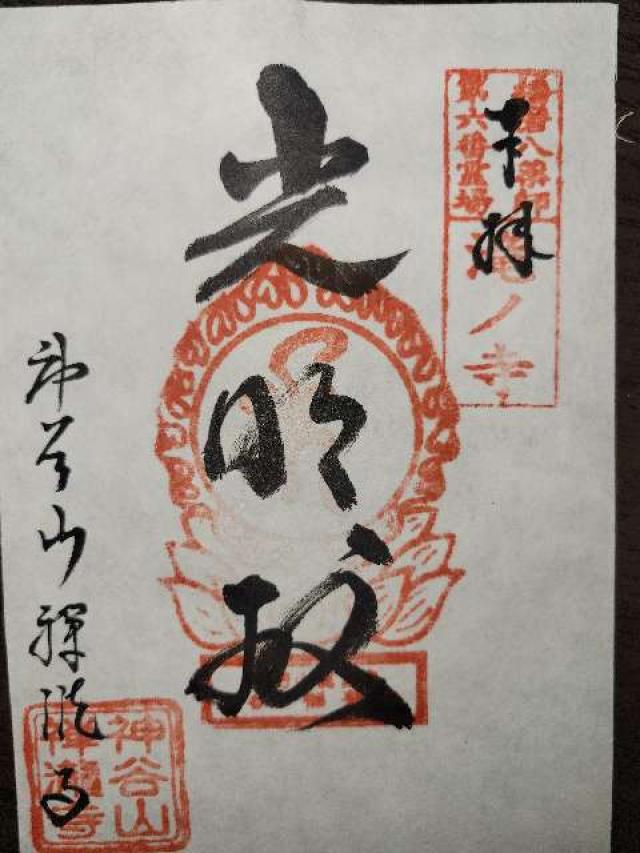 奉拝
播磨八薬師
第六番霊場
滝ノ寺
光明殿
神谷山禅瀧寺
神谷山
禅瀧寺